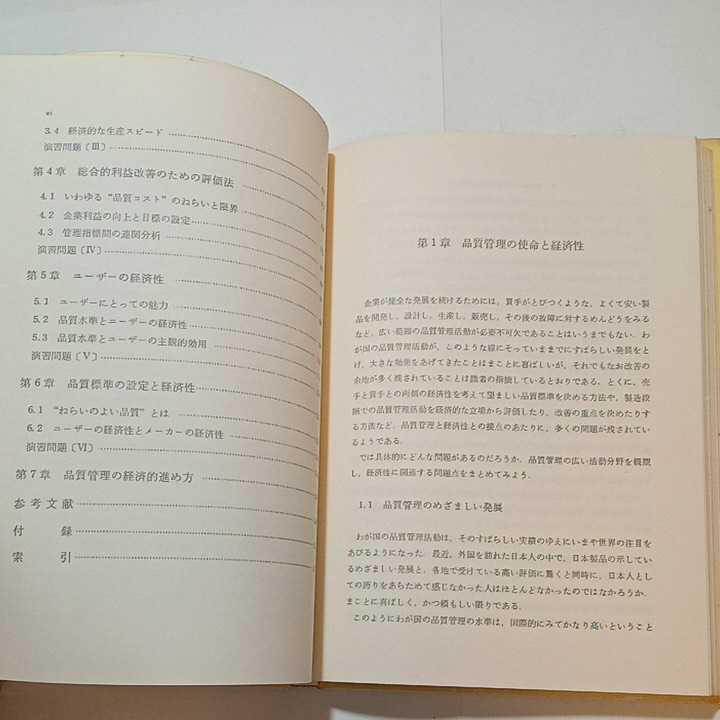 vi
3.4 経済的な生産スピード
演習問題〔Ⅲ〕
第4章 総合的利益改善のための評価法
4.1 いわゆる“品質コスト”のねらいと限界
4.2 企業利益の向上と目標の設定
4.3 管理指標間の連関分析
演習問題〔Ⅳ〕
第5章 ユーザーの経済性
5.1 ユーザーにとっての魅力
5.2 品質水準とユーザーの経済性
5.3 品質水準とユーザーの主観的効用
演習問題〔Ⅴ〕
第6章 品質標準の設定と経済性
6.1 “ねらいのよい品質”とは
6.2 ユーザーの経済性とメーカーの経済性
演習問題〔Ⅵ〕
第7章 品質管理の経済的進め方
参考文献
付録
索引
第1章 品質管理の使命と経済性
企業が健全な発展を続けるためには，買手がとびつくような，よくて安い製
品を開発し，設計し，生産し，販売し，その後の故障に対するめんどうをみる
など，広い範囲の品質管理活動が必要不可欠であることはいうまでもない．わ
が国の品質管理活動が，このような線にそっていままでにすばらしい発展をと
げ，大きな効果をあげてきたことはまことに喜ばしいが，それでもなお改善の
余地が多く残されていることは識者の指摘しているとおりである．とくに，売
手と買手との両側の経済性を考えて望ましい品質標準を決める方法や，製造段
階での品質管理活動を経済的な立場から評価したり，改善の重点を決めたりす
る方法など，品質管理と経済性との接点のあたりに，多くの問題が残されてい
るようである．
では具体的にどんな問題があるのだろうか．品質管理の広い活動分野を概観
し，経済性に関連する問題点をまとめてみよう．
1.1 品質管理のめざましい発展
わが国の品質管理活動は，そのすばらしい実績のゆえにいまや世界の注目を
あびるようになった．最近，外国を訪れた日本人の中で，日本製品の示してい
るめざましい発展と，各地で受けている高い評価に驚くと同時に，日本人とし
ての誇りをあらためて感じなかった人はほとんどなかったのではなかろうか．
まことに喜ばしく，かつ頼もしい限りである．
このようにわが国の品質管理の水準は，国際的にみてかなり高いということ